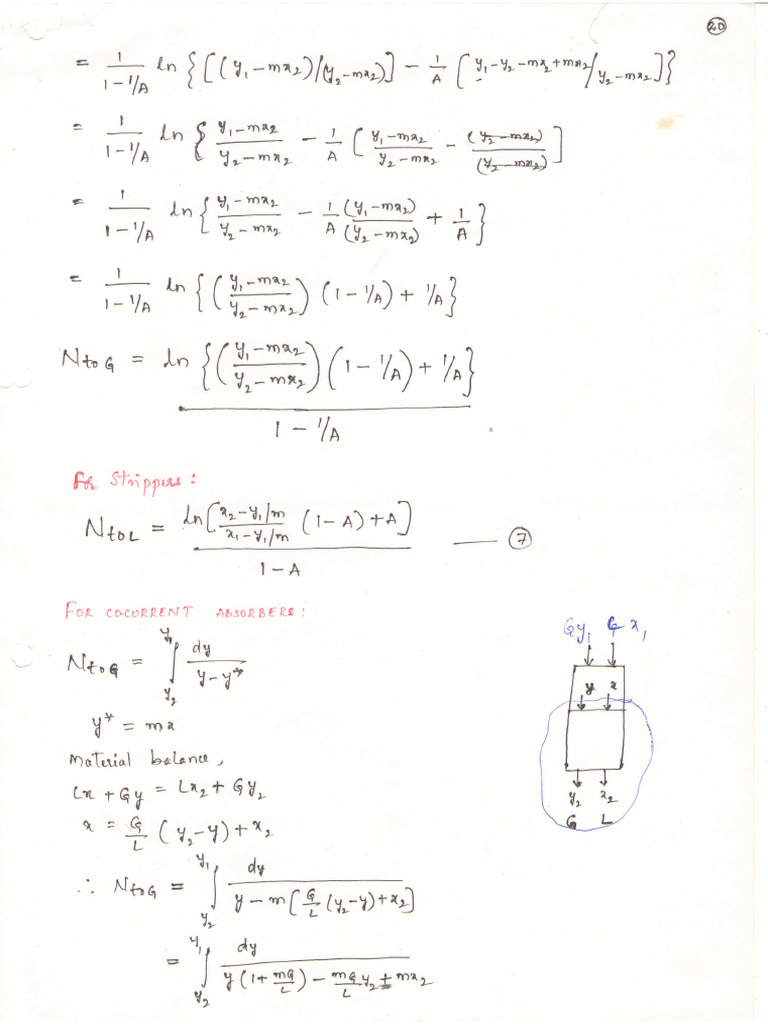 20
= 1/(1 - 1/A) ln { [(y₁ - mx₂)/(y₂ - mx₂)] - 1/A [ y₁ - y₂ - mx₂ + mx₂ / y₂ - mx₂ ] }
= 1/(1 - 1/A) ln { (y₁ - mx₂)/(y₂ - mx₂) - 1/A [ (y₁ - mx₂)/(y₂ - mx₂) - (y₂ - mx₂)/(y₂ - mx₂) ]
= 1/(1 - 1/A) ln { (y₁ - mx₂)/(y₂ - mx₂) - 1/A (y₁ - mx₂)/(y₂ - mx₂) + 1/A }
= 1/(1 - 1/A) ln { ( (y₁ - mx₂)/(y₂ - mx₂) ) (1 - 1/A) + 1/A }
NtoG = ln { ( (y₁ - mx₂)/(y₂ - mx₂) ) (1 - 1/A) + 1/A } / (1 - 1/A)
For Strippers :
NtoL = ln [ (x₂ - y₁/m)/(x₁ - y₁/m) (1 - A) + A ] / (1 - A) —— 7
FOR COCURRENT ABSORBERS :
NtoG = ∫ y₂ y₁ dy/(y - y*)
y* = mx
Material balance,
Lx + Gy = Lx₂ + Gy₂
x = G/L (y₂ - y) + x₂
∴ NtoG = ∫ y₂ y₁ dy / (y - m [ G/L (y₂ - y) + x₂ ])
= ∫ y₂ y₁ dy / (y (1 + mG/L) - mG/L y₂ + mx₂)
Gy₁ x₁
y x
y₂ x₂
G L